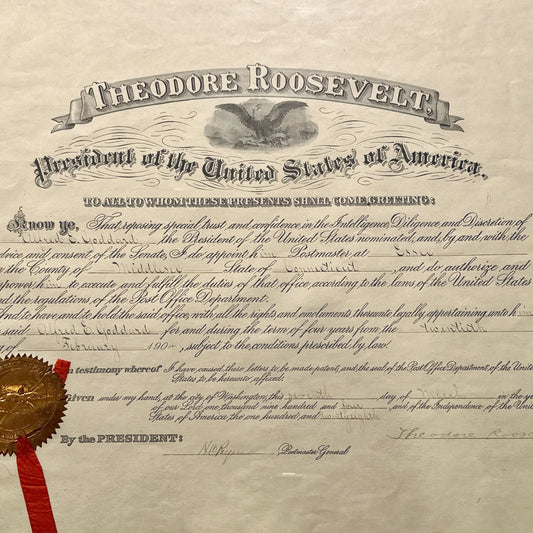 THEODORE ROOSEVELT,
President of the United States of America.
TO ALL TO WHOM THESE PRESENTS SHALL COME, GREETING:
Know ye, That reposing special trust and confidence in the Intelligence, Diligence, and Discretion of
Alfred E. Goddard the President of the United States nominated, and, by and with the
dvice and consent of the Senate, I do appoint him Postmaster at Essex
the County of Middlesex State of Connecticut, and do authorize and
power him to execute and fulfill the duties of that office according to the laws of the United States
nd the regulations of the Post Office Department.
And to have and to hold the said office, with all the rights, and emoluments thereunto legally appertaining, unto him
said Alfred E. Goddard for and during the term of four years from the twentieth
of February 1904, subject to the conditions prescribed by law.
In testimony whereof I have caused these letters to be made patent, and the seal of the Post Office Department of the United
States to be hereunto affixed:
Given under my hand, at the city of Washington, this seventh day of March, in the ye
of our Lord one thousand nine hundred and four, and of the Independence of the United
States of America, the one hundred and
By the PRESIDENT:
Theodore Roose
Postmaster General